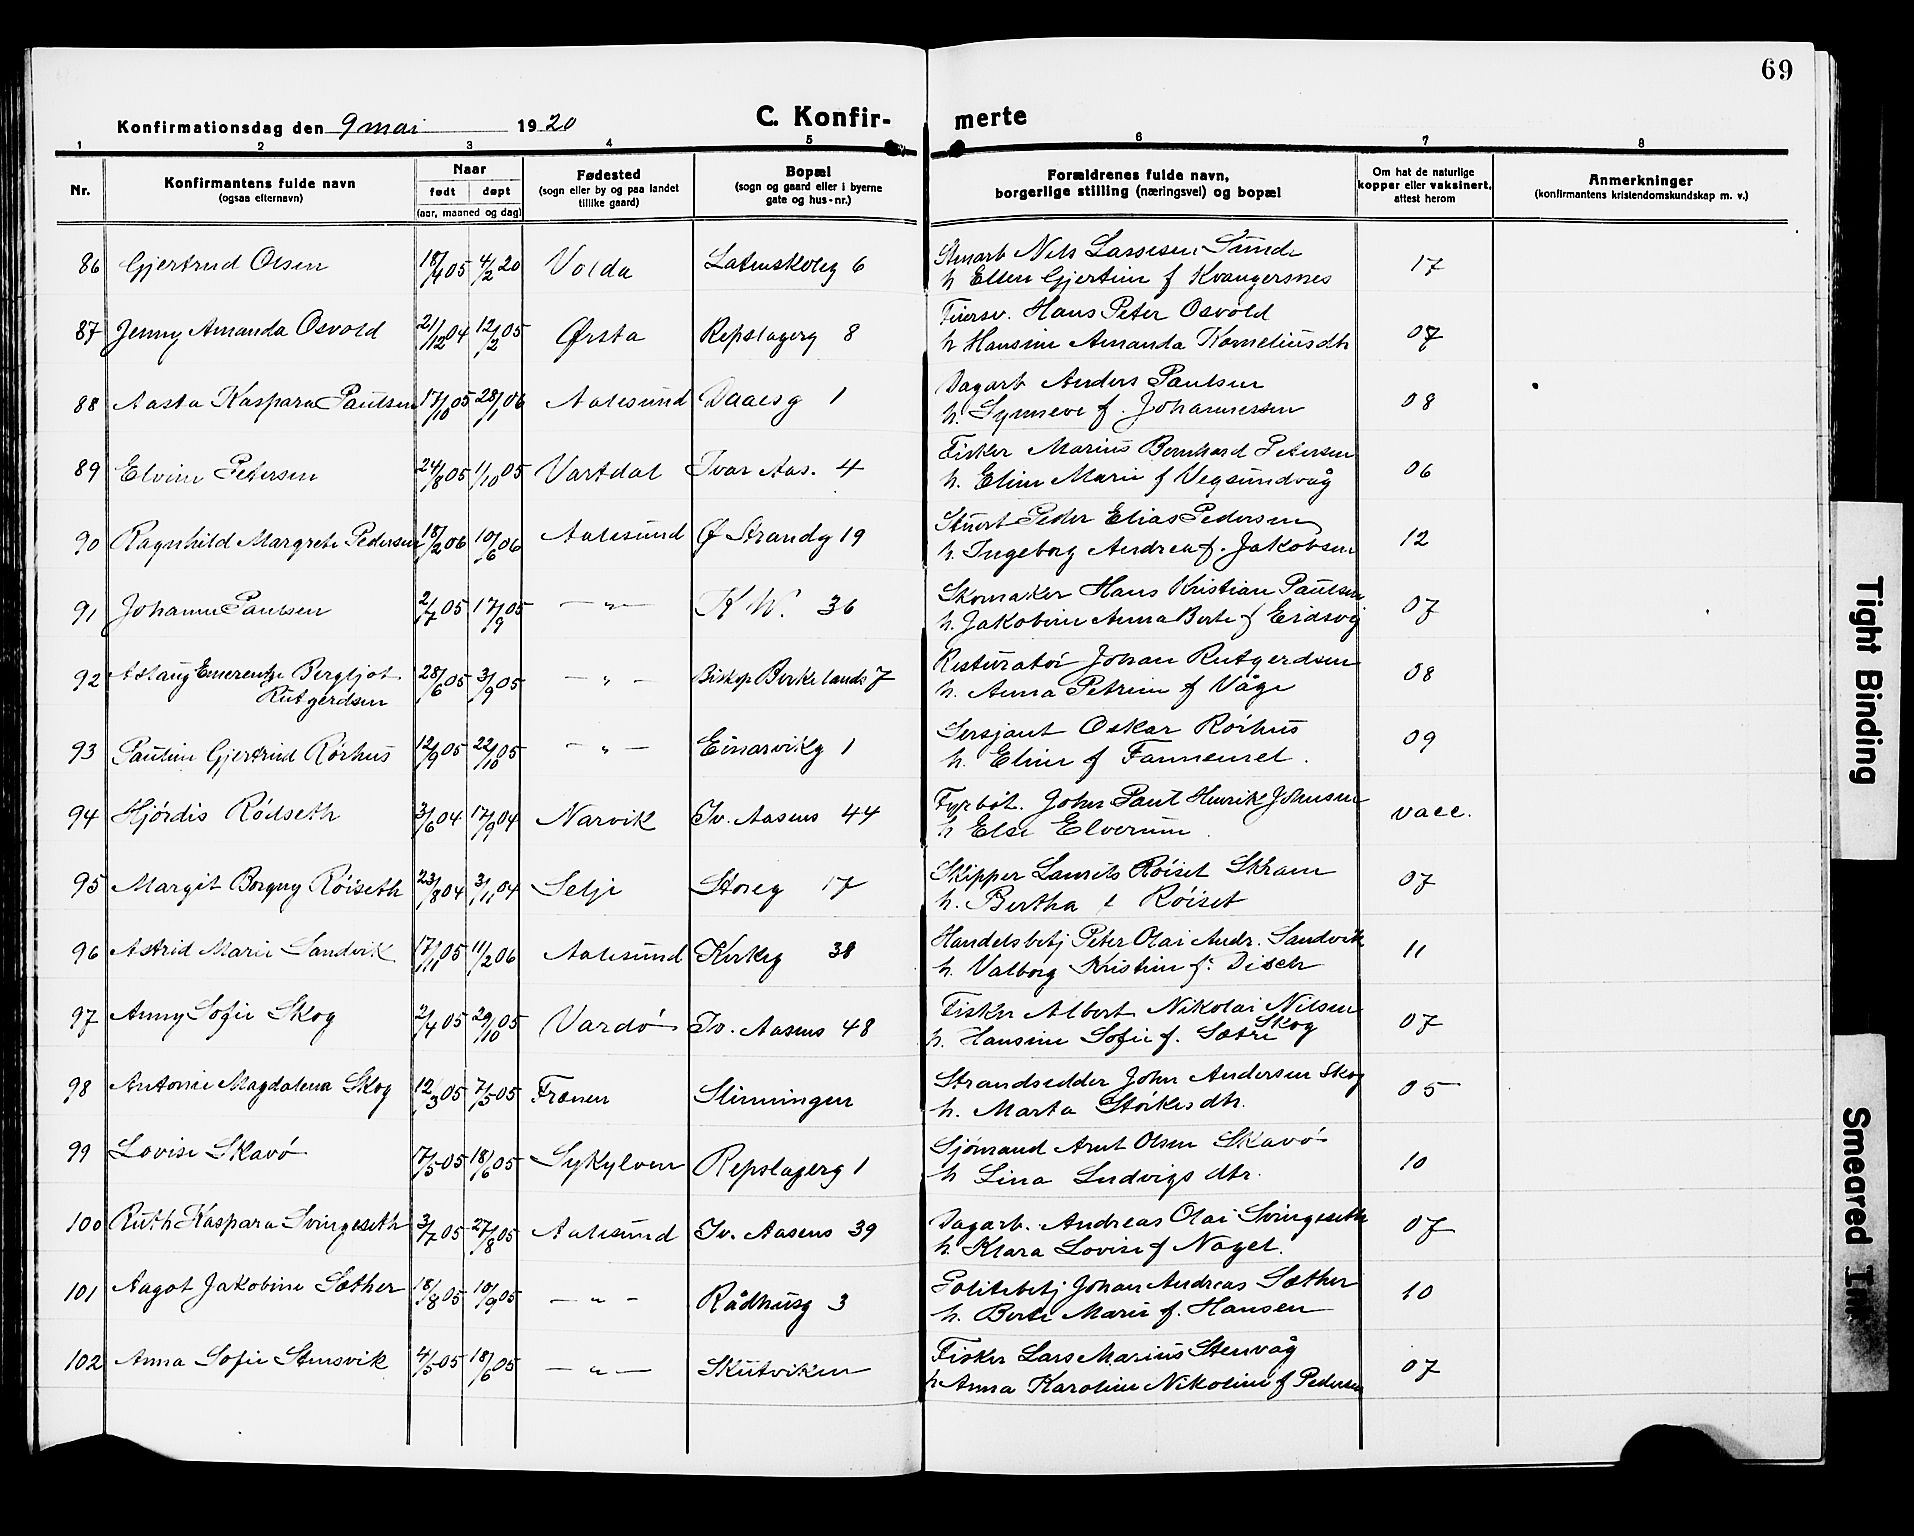 69
Konfirmationsdag den 9 mai 1920 C. Konfir- merte
1 2 3 4 5 6 7 8
Nr. Konfirmantens fulde navn (ogsaa efternavn) Naar født døpt (aar, maaned og dag) Fødested (sogn eller by og paa landet tillike gaard) Bopæl (sogn og gaard eller i byerne gate og hus-nr.) Forældrenes fulde navn, borgerlige stilling (næringsvei) og bopæl Om hat de naturlige kopper eller vaksinert, attest herom Anmerkninger (konfirmantens kristendomskundskap m. v.)
86 Gjertrud Olsen 18/4 05 4/2 20 Volda Latinskoleg 6 Stuarb Nils Larsen Sunde
h Ellen Gjertine f Kvangersnes 17
87 Jenny Amanda Osvold 21/12 04 12/2 05 Ørsta Repslagerg 8 Hans Peter Osvold
h Hansine Amanda Korneliusdtr 07
88 Aasta Kaspara Paulsen 17/10 05 28/1 06 Aalesund Daaesg 1 Dagarb Anders Paulsen
h. Synneve f. Johannessen 08
89 Elvine Petersen 24/8 05 1/10 05 Vartdal Ivar Aas. 4 Fisker Marius Bernhard Petersen
h. Eline Marie f Vegsundvåg 06
90 Ragnhild Margrete Pedersen 18/2 06 10/6 06 Aalesund Ø Strandg 19 Stuert Peder Elias Pedersen
h. Ingeborg Andrea f. Jakobsen 12
91 Johanne Paulsen 2/7 05 17/9 05 — " — K W. 36 Skomaker Hans Kristian Paulsen
h. Jakobine Anna Berte f Eidsvig 07
92 Aslaug Emerentze Bergljot
Rutgerdsen 28/6 05 3/9 05 — " — Biskop Berkelands 7 Restauratør Johan Rutgerdsen
h. Anna Petrine f Våge 08
93 Pauline Gjertrud Rørhus 12/9 05 22/10 05 — " — Einarvikg 1 Sersjant Oskar Rørhus
h. Eline f Fannemel. 09
94 Hjørdis Rødseth 3/6 04 17/9 04 Narvik Iv. Aasens 44 Fyrbøt. John Paul Henrik Johnsen
h Else Elverum. vacc.
95 Margit Borgny Røiseth 23/8 04 3/11 04 Selje Storeg 17 Skipper Laurits Røiset Skram
h. Bertha f Røiset 07
96 Astrid Marie Sandvik 17/11 05 11/2 06 Aalesund Kirkeg 38 Handelsbetj Peter Olai Andr. Sandvik
h. Valborg Kristine f. Disch 11
97 Anny Sofie Skog 2/4 05 29/10 05 Vardø Iv. Aasens 48 Fisker Albert Nikolai Nilsen Skog
h. Hansine Sofie f. Sætre 07
98 Antonie Magdalena Skog 12/3 05 7/5 05 Frænen Slinningen Strandsidder John Andersen Skog
h. Marta Størkesdtr. 05
99 Lovise Skavø 17/5 05 18/6 05 Sykylven Repslagerg 1 Sjømand Arnt Olsen Skavø
h Lina Ludvigs dtr. 10
100 Ruth Kaspara Svingeseth 3/7 05 27/8 05 Aalesund Iv. Aasens 39 Dagarb. Andreas Olai Svingeseth
h. Klara Lovise f Nagel. 07
101 Aagot Jakobine Sæther 18/8 05 10/9 05 — " — Rådhusg 3 Politibetj Johan Andreas Sæther
h. Berte Marie f. Hansen 10
102 Anna Sofie Stensvik 4/5 05 18/6 05 — " — Skutviken Fisker Lars Marius Stenvåg
h Anna Karoline Nikoline f Pedersen 07
Tight Binding
Smeared Ink